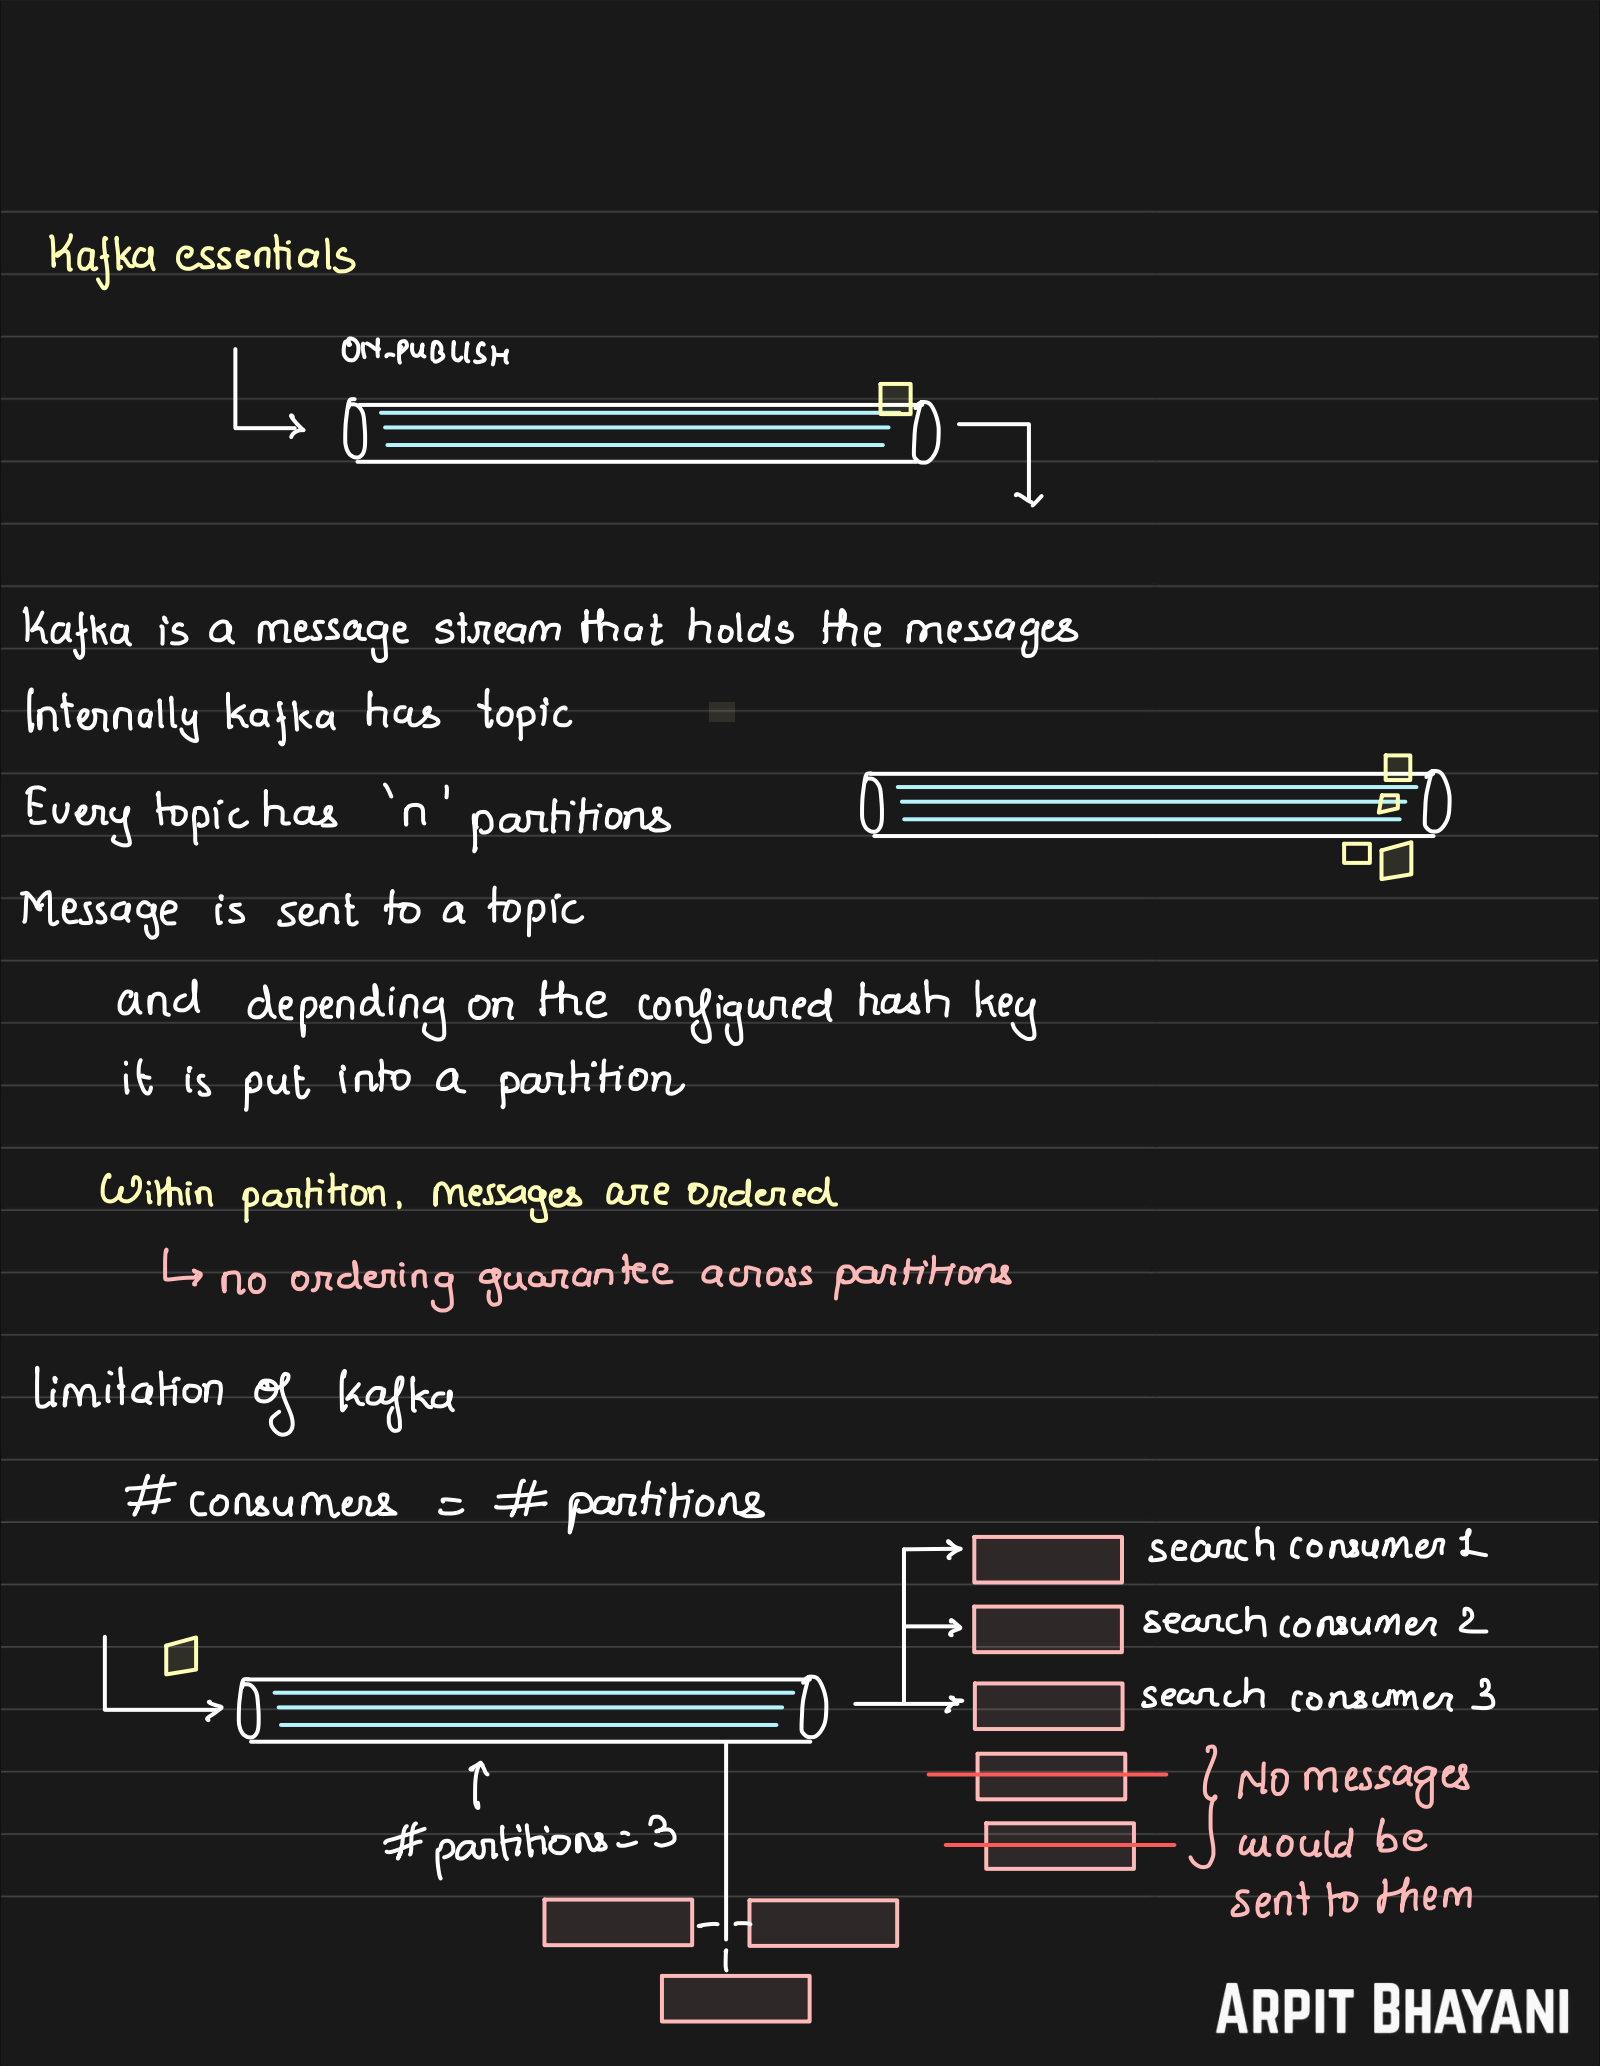 Kafka essentials
ON-PUBLISH
Kafka is a message stream that holds the messages
Internally kafka has topic
Every topic has 'n' partitions
Message is sent to a topic
and depending on the configured hash key
it is put into a partition
Within partition, messages are ordered
no ordering guarantee across partitions
Limitation of kafka
# consumers = # partitions
search consumer 1
search consumer 2
search consumer 3
# partitions = 3
No messages
would be
sent to them
ARPIT BHAYANI